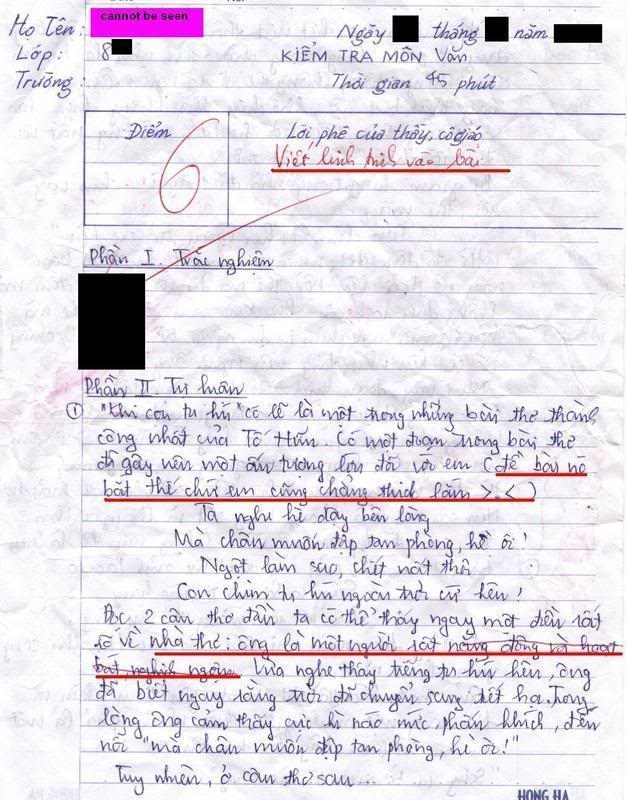 cannot be seen
Họ Tên:
Ngày tháng năm
Lớp: 8
KIỂM TRA MÔN Văn
Trường:
Thời gian 45 phút
Điểm
Lời phê của thầy, cô giáo
6
Viết linh tinh vào bài
Phần I. Trắc nghiệm
Phần II. Tự luận
① "Khi con tu hú" có lẽ là một trong những bài thơ thành
công nhất của Tố Hữu. Có một đoạn trong bài thơ
đã gây nên một ấn tượng lớn đối với em (đề bài nó
bắt thế chứ em cũng chẳng thích lắm >.<)
Ta nghe hè dậy bên lòng
Mà chân muốn đạp tan phòng, hè ôi!
Ngột làm sao, chết uất thôi
Con chim tu hú ngoài trời cứ kêu!
Đọc 2 câu thơ đầu ta có thể thấy ngay một điều rất
rõ về nhà thơ: ông là một người rất năng động và hoạt
bát, nghịch ngợm. Vừa nghe thấy tiếng tu hú kêu, ông
đã biết ngay rằng trời đã chuyển sang tiết hạ. Trong
lòng ông cảm thấy cực kì náo nức, phấn khích, đến
nỗi "mà chân muốn đạp tan phòng, hè ôi!"
Tuy nhiên, ở câu thơ sau...
HONG HA